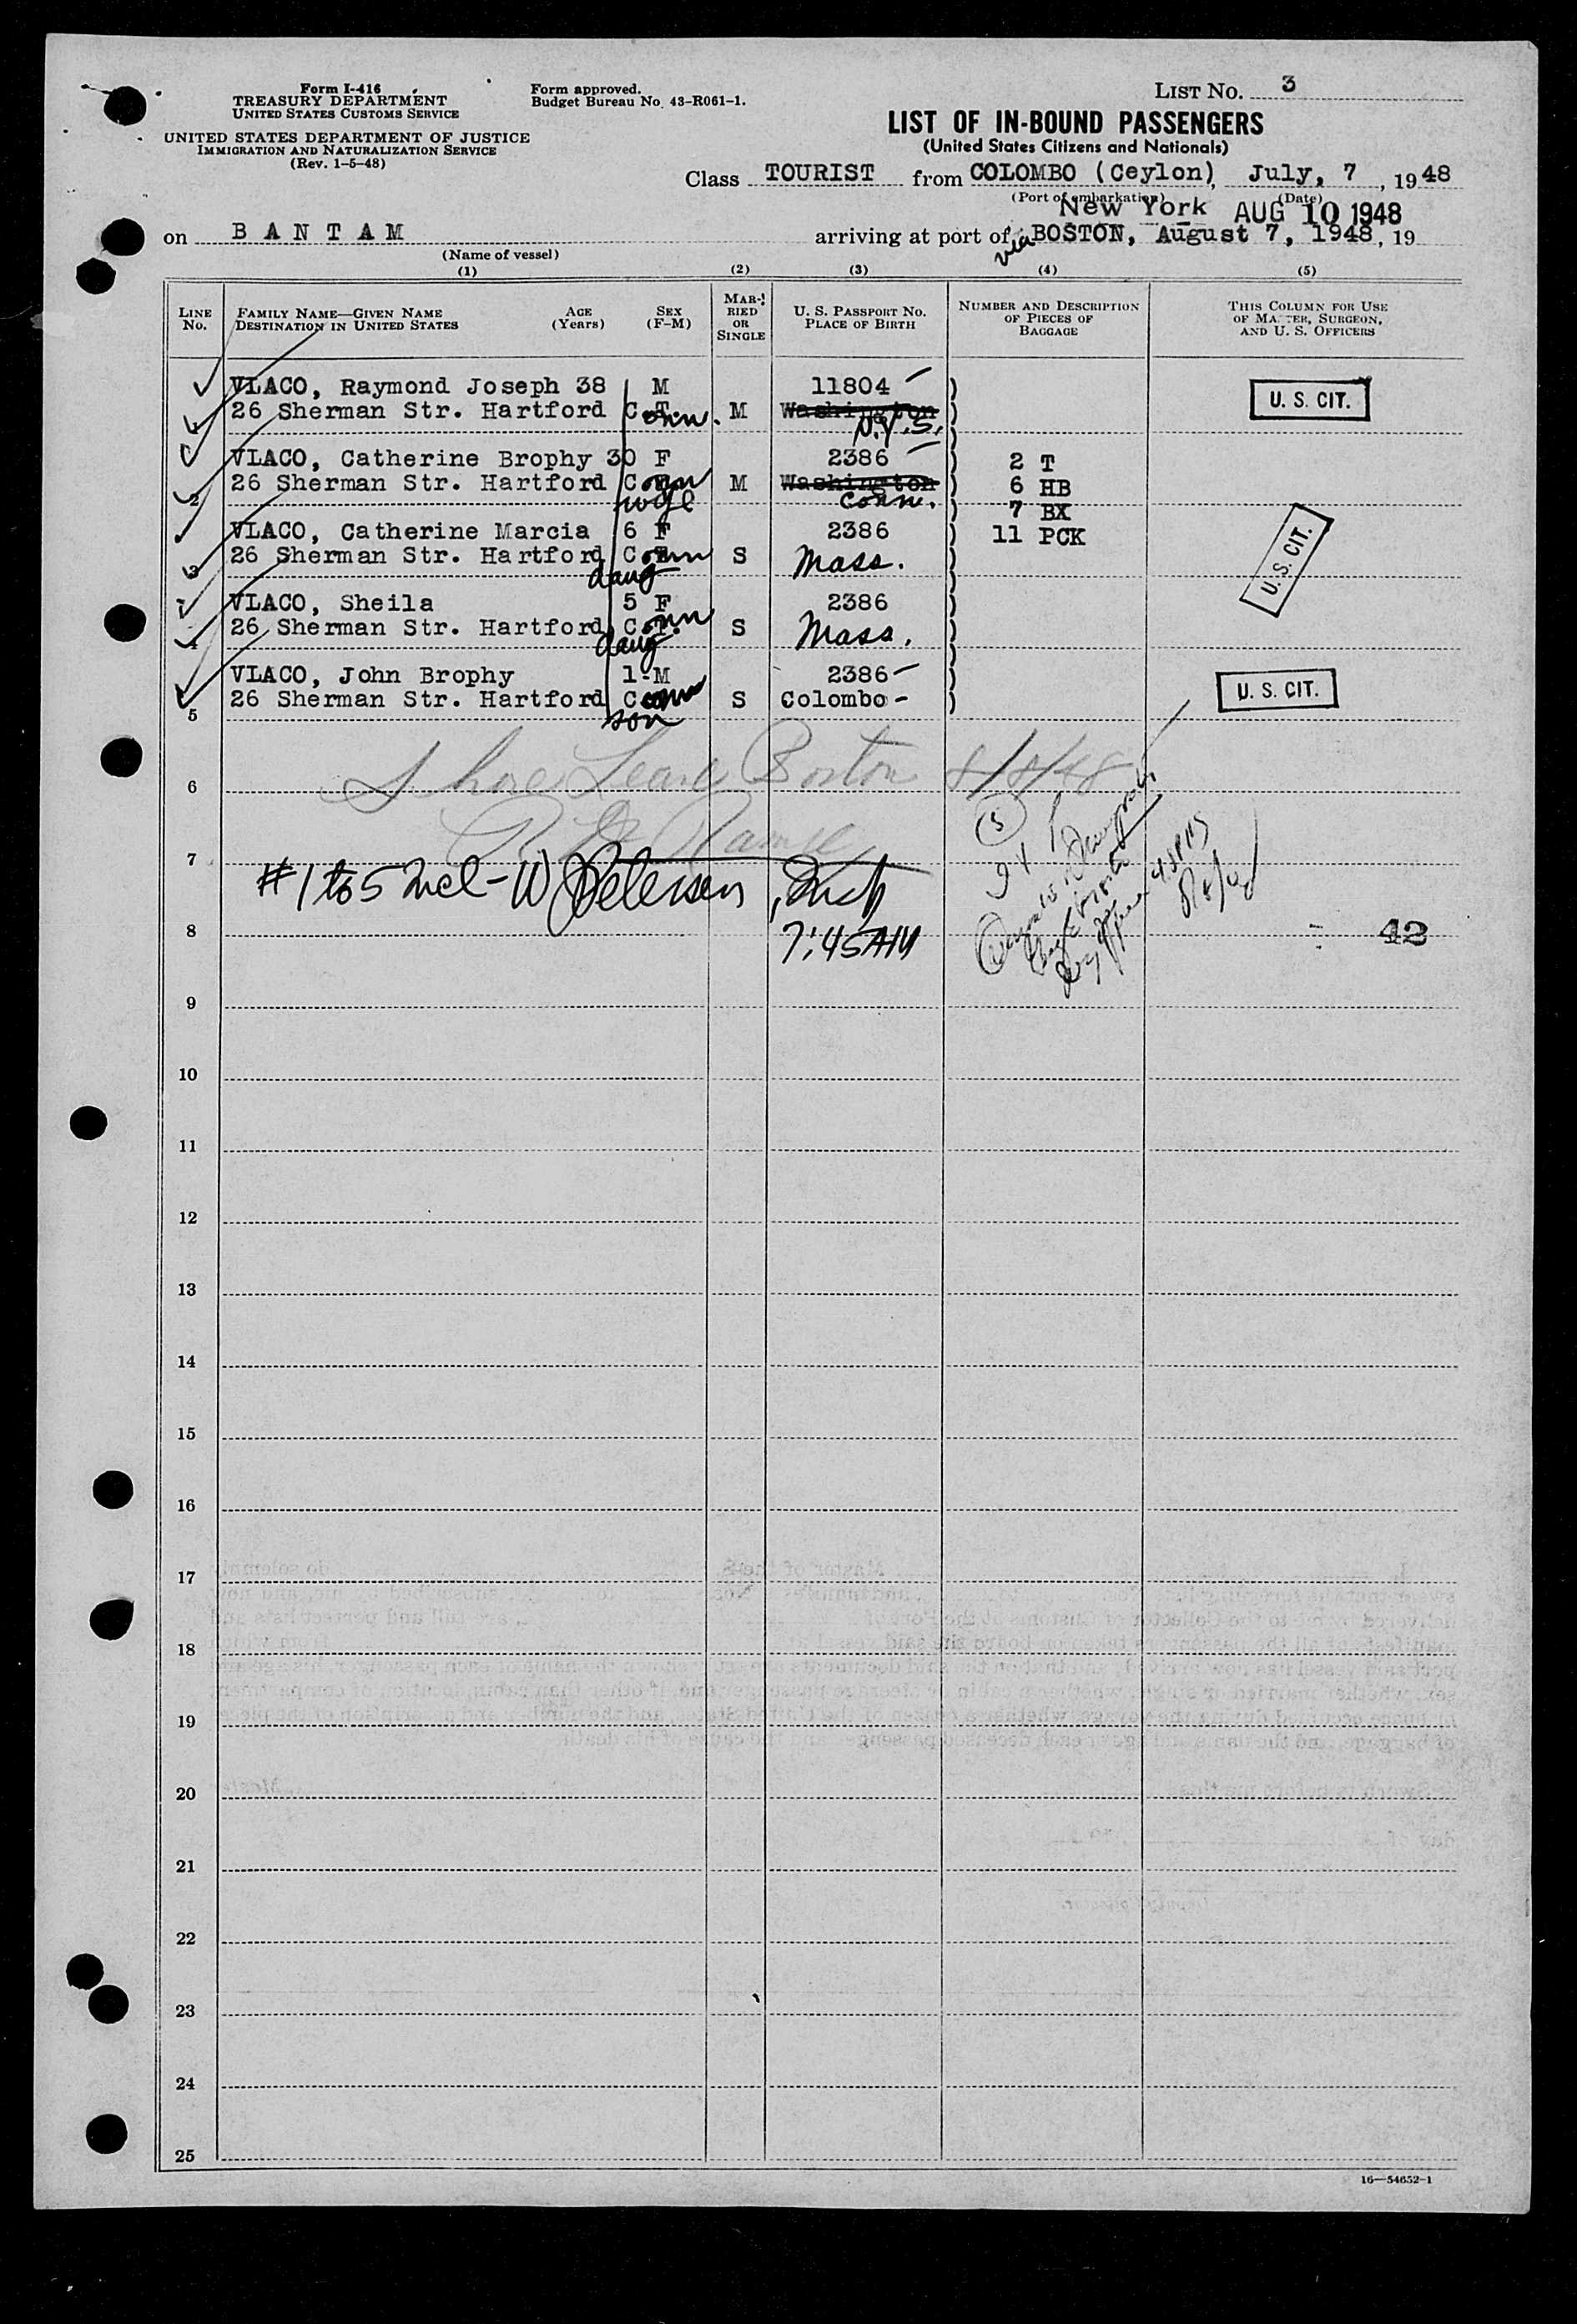 Form I-416
TREASURY DEPARTMENT
UNITED STATES CUSTOMS SERVICE
UNITED STATES DEPARTMENT OF JUSTICE
IMMIGRATION AND NATURALIZATION SERVICE
(Rev. 1-5-48)
Form approved.
Budget Bureau No. 43-R061-1.
LIST NO. 3
LIST OF IN-BOUND PASSENGERS
(United States Citizens and Nationals)
Class TOURIST from COLOMBO (Ceylon), July, 7, 1948
(Port of embarkation) (Date)
New York AUG 10 1948
on BANTAM arriving at port of via BOSTON, August 7, 1948, 19
(Name of vessel)
(1) (2) (3) (4) (5)
LINE No. FAMILY NAME—GIVEN NAME DESTINATION IN UNITED STATES AGE (Years) SEX (F-M) MARRIED OR SINGLE U. S. PASSPORT No. PLACE OF BIRTH NUMBER AND DESCRIPTION OF PIECES OF BAGGAGE THIS COLUMN FOR USE OF MASTER, SURGEON, AND U. S. OFFICERS
VLACO, Raymond Joseph 38 M 11804
1 26 Sherman Str. Hartford Conn. M Washington U. S. CIT.
N.Y.S.
VLACO, Catherine Brophy 30 F 2386 2 T
2 26 Sherman Str. Hartford Conn M Washington 6 HB
wife Conn. 7 BX
VLACO, Catherine Marcia 6 F 2386 11 PCK
3 26 Sherman Str. Hartford Conn S Mass. U. S. CIT.
daug
VLACO, Sheila 5 F 2386
4 26 Sherman Str. Hartford Conn S Mass.
daug
VLACO, John Brophy 1- M 2386-
5 26 Sherman Str. Hartford Conn S Colombo - U. S. CIT.
son
6 Shore Leave Boston 8/8/48
7
#1 to 5 Incl - W Petersen, Insp
8 7:45 AM 42
9
10
11
12
13
14
15
16
17
18
19
20
21
22
23
24
25
16—54652-1